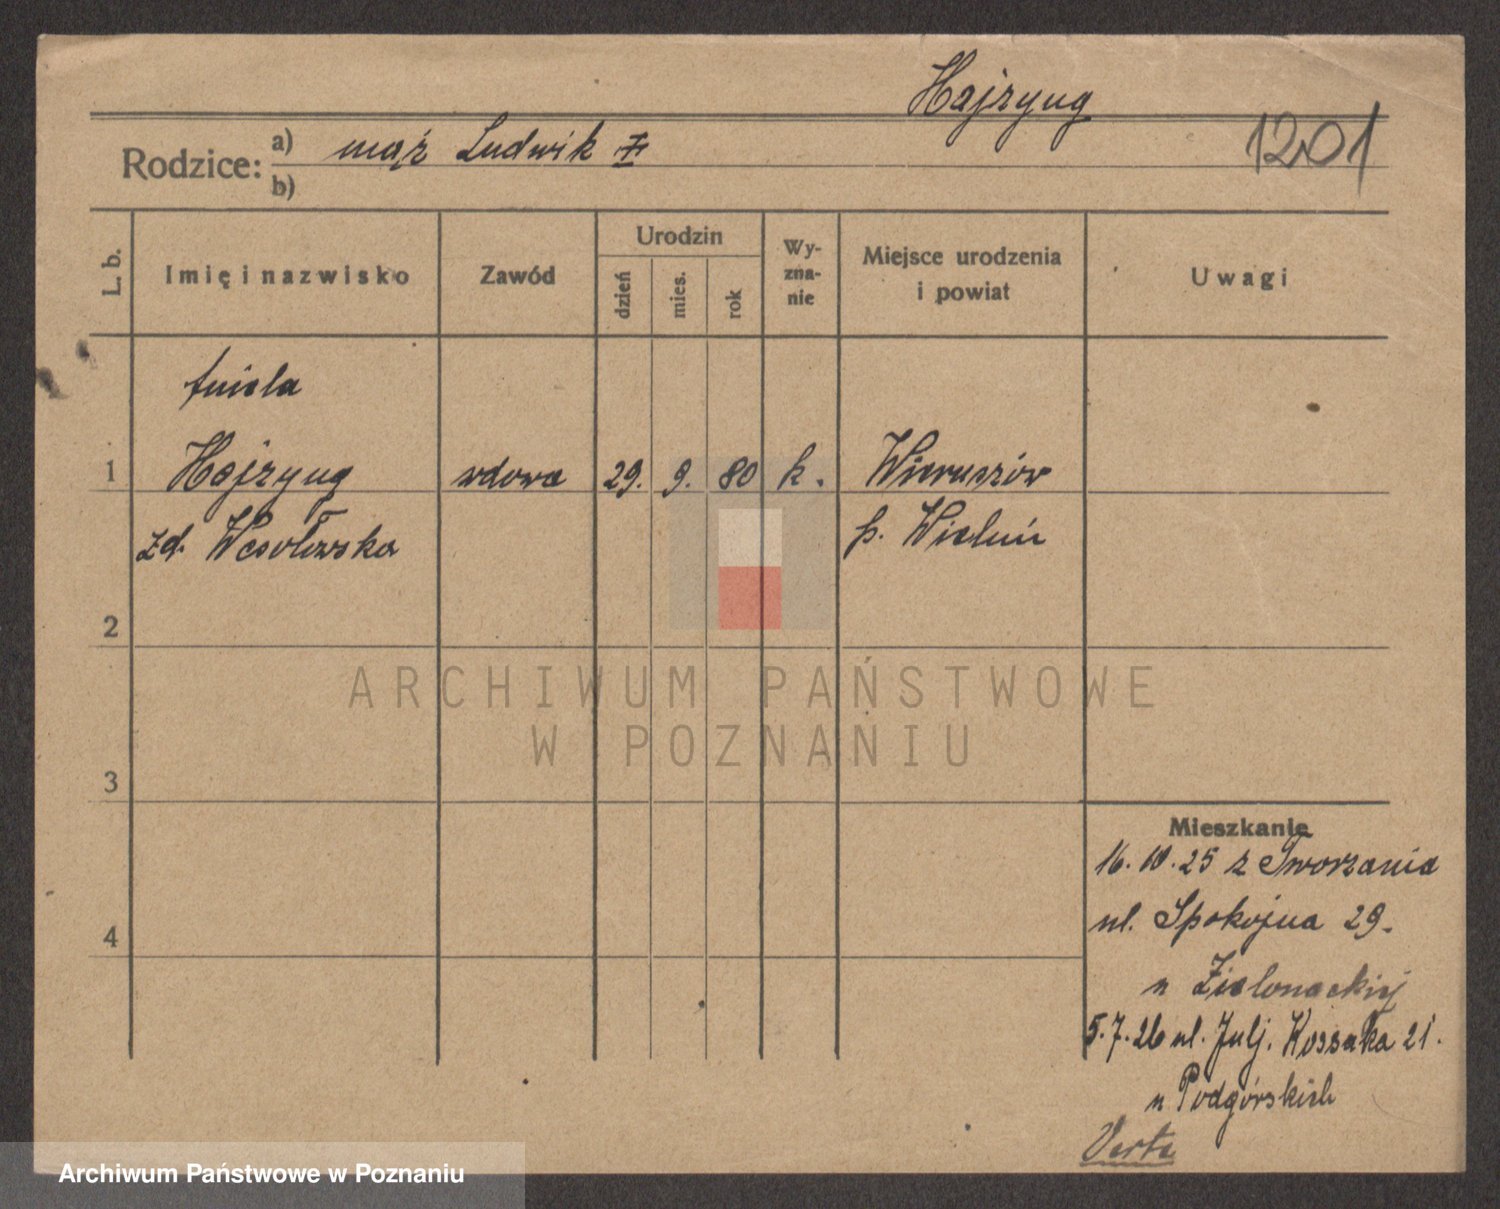 Hajzyng
1201
Rodzice: a) mąż Ludwik
b)
L. b.
Imię i nazwisko
Zawód
Urodzin
dzień
mies.
rok
Wy-
zna-
nie
Miejsce urodzenia
i powiat
Uwagi
Aniela
1 Hajzyng wdowa 29. 9. 80 k. Wieruszów
zd. Wesołowska p. Wieluń
2
ARCHIWUM PAŃSTWOWE
W POZNANIU
3
4
Mieszkanie
16.10.25 z Tworzania
ul. Spokojna 29.
u Zielonackiej
5.7.26 ul. Julj. Kossaka 21.
u Podgórskich
Verte
Archiwum Państwowe w Poznaniu